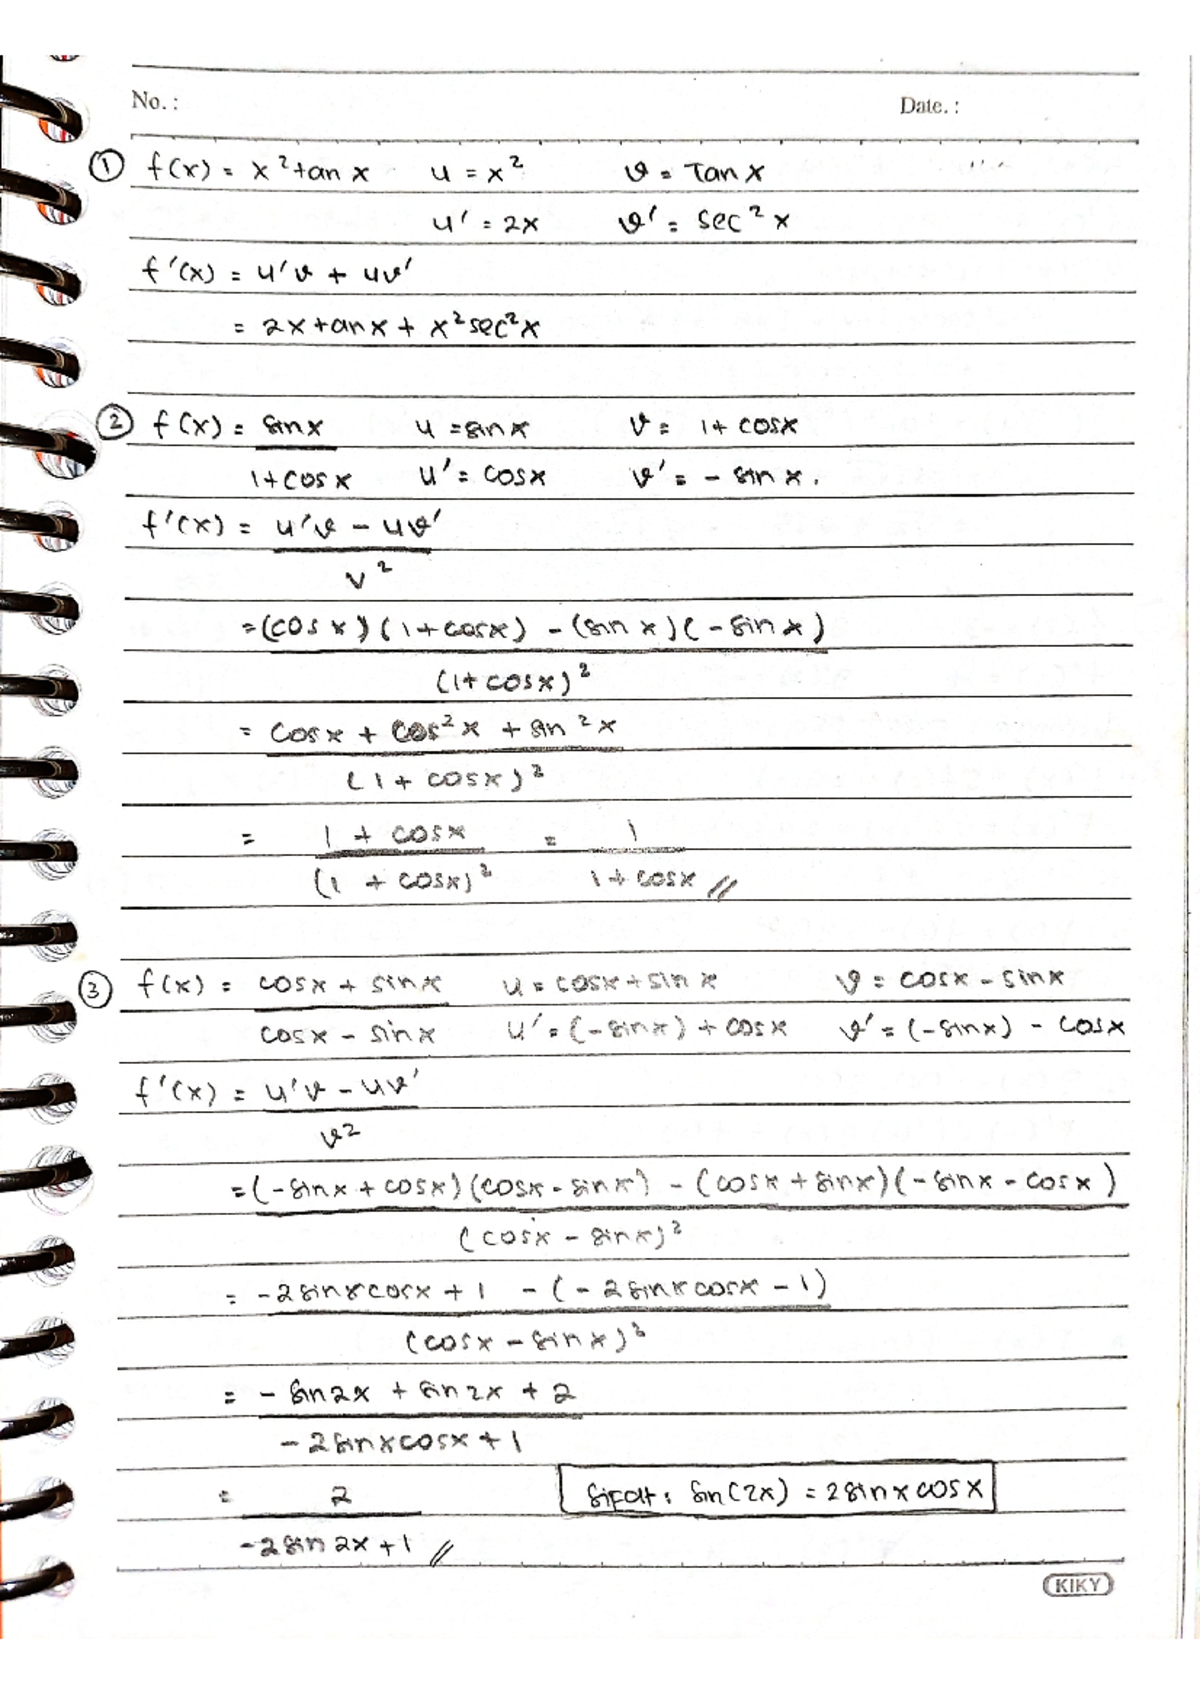 No. : Date. :
① f(x) = x² tan x u = x² v = Tan x
u' = 2x v' = sec² x
f'(x) = u'v + uv'
= 2x tan x + x² sec² x
② f(x) = sin x u = sin x v = 1 + cos x
1 + cos x u' = cos x v' = - sin x.
f'(x) = u'v - uv'
v²
= (cos x)(1 + cos x) - (sin x)(- sin x)
(1 + cos x)²
= cos x + cos² x + sin² x
(1 + cos x)²
= 1 + cos x = 1
(1 + cos x)² 1 + cos x //
③ f(x) = cos x + sin x u = cos x + sin x v = cos x - sin x
cos x - sin x u' = (- sin x) + cos x v' = (- sin x) - cos x
f'(x) = u'v - uv'
v²
= (- sin x + cos x)(cos x - sin x) - (cos x + sin x)(- sin x - cos x)
(cos x - sin x)²
= -2 sin x cos x + 1 - (- 2 sin x cos x - 1)
(cos x - sin x)²
= - sin 2x + sin 2x + 2
- 2 sin x cos x + 1
= 2 Sifat : Sin(2x) = 2 sin x cos x
-2 sin 2x + 1 //
KIKY